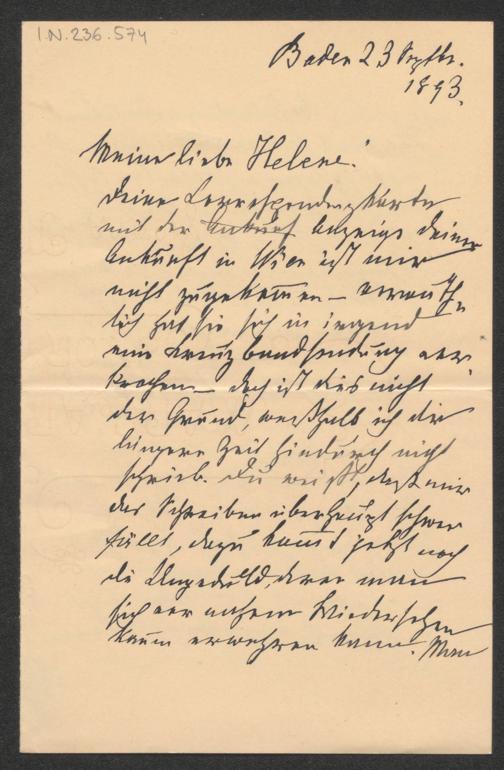 I.N. 236.574
Baden 23 Septbr.
1893.
Meine liebe Helene!
Deine Correspondenzkarte
mit der Ankunft Anzeige deiner
Ankunft in Wien ist mir
nicht zugekommen – vermuth-
lich hat sie sich in irgend
eine Kreuzbandsendung ver-
krochen – doch ist dies nicht
der Grund, weßhalb ich dir
längere Zeit hindurch nicht
schrieb. Du weißt, daß mir
das Schreiben überhaupt schwer
fällt, dazu kommt jetzt noch
die Ungeduld, derer man
sich vor nahem Wiedersehen
kaum erwehren kann. Man